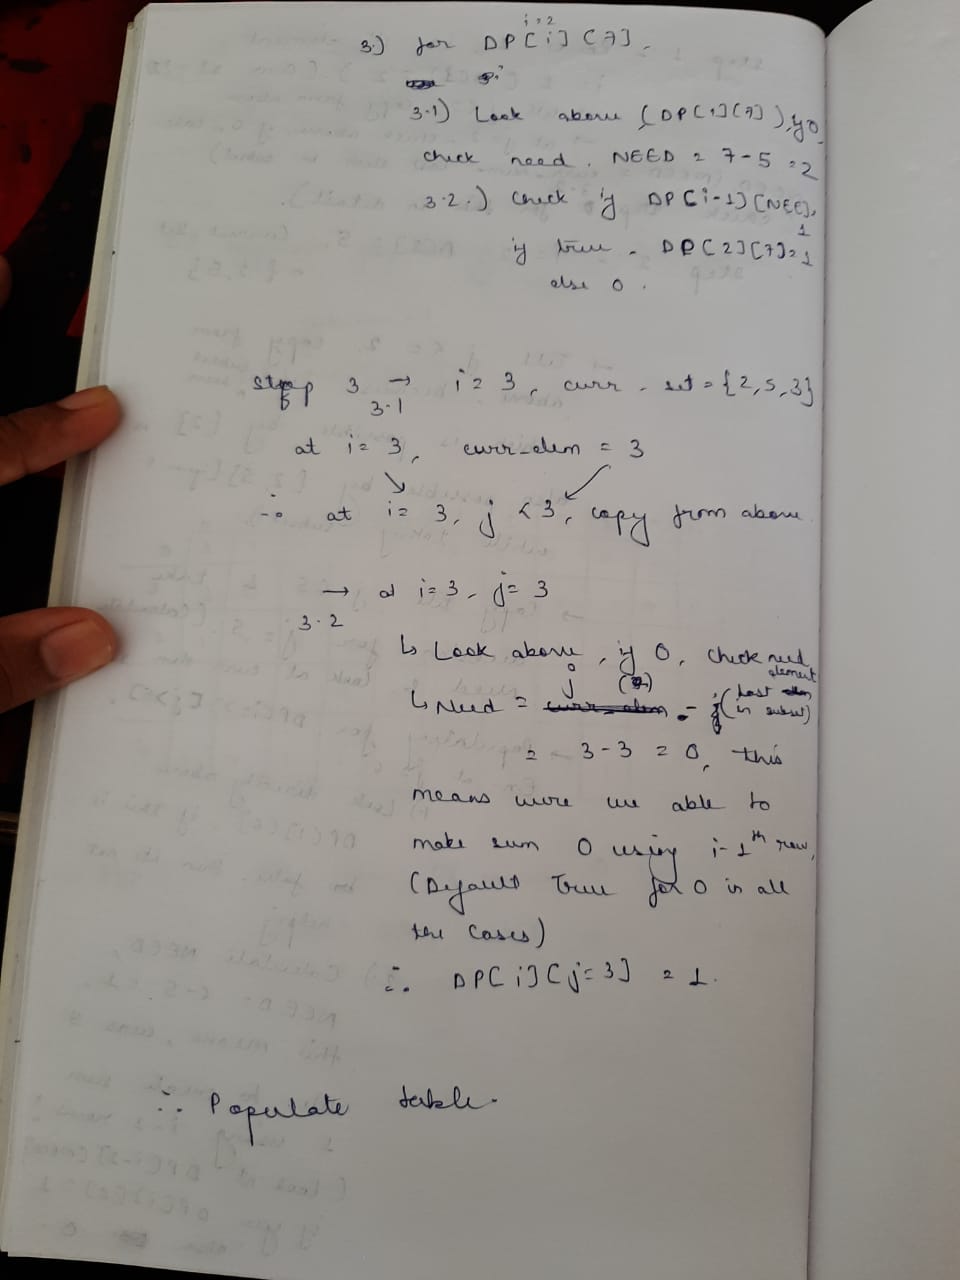 i=2
3.) for DP[i][7].
3.1) Look above (DP[1][7]), if 0,
check need. NEED = 7-5 = 2
3.2.) Check if DP[i-1][NEED],
1
if true - DP[2][7]=1
else 0.
step 3 → i=3, curr - set = {2,5,3}
3.1
at i=3, curr-elem = 3
∴ at i=3, j<3, copy from above
→ at i=3, j=3
3.2
↳ Look above, if 0, check need
↳ Need = j - (Last element in subset)
= 3-3 = 0, this
means were we able to
make sum 0 using i-1th row,
(Default True for 0 in all
the cases)
∴ DP[i][j=3] = 1.
∴ Populate table.